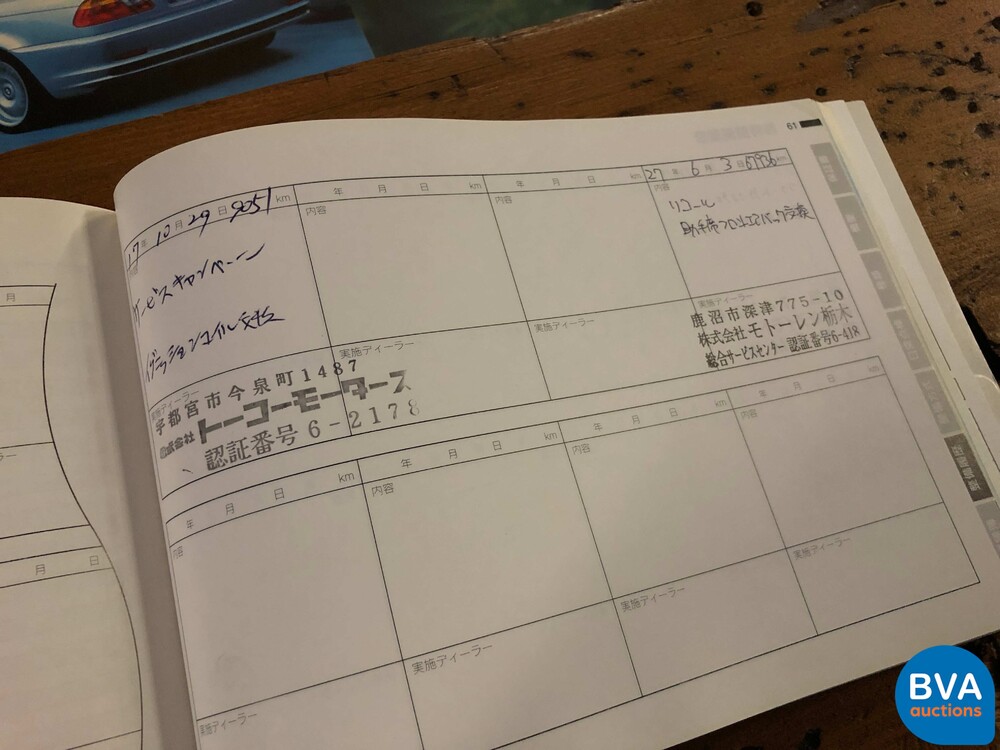 61
17 年 10 月 29 日 9051 km
年 月 日 km
年 月 日 km
27 年 6 月 3 日 67936 km
内容
内容
内容
サービスキャンペーン
イグニッションコイル交換
リコール
助手席フロントエアバック交換
実施ディーラー
実施ディーラー
実施ディーラー
実施ディーラー
宇都宮市今泉町1487
株式会社 トーコーモータース
認証番号6-2178
鹿沼市深津775-10
株式会社モトーレン栃木
総合サービスセンター 認証番号6-418
年 月 日 km
年 月 日 km
年 月 日 km
年 月 日 km
内容
内容
内容
内容
実施ディーラー
実施ディーラー
実施ディーラー
実施ディーラー
月
ラー
月 日
BVA
auctions